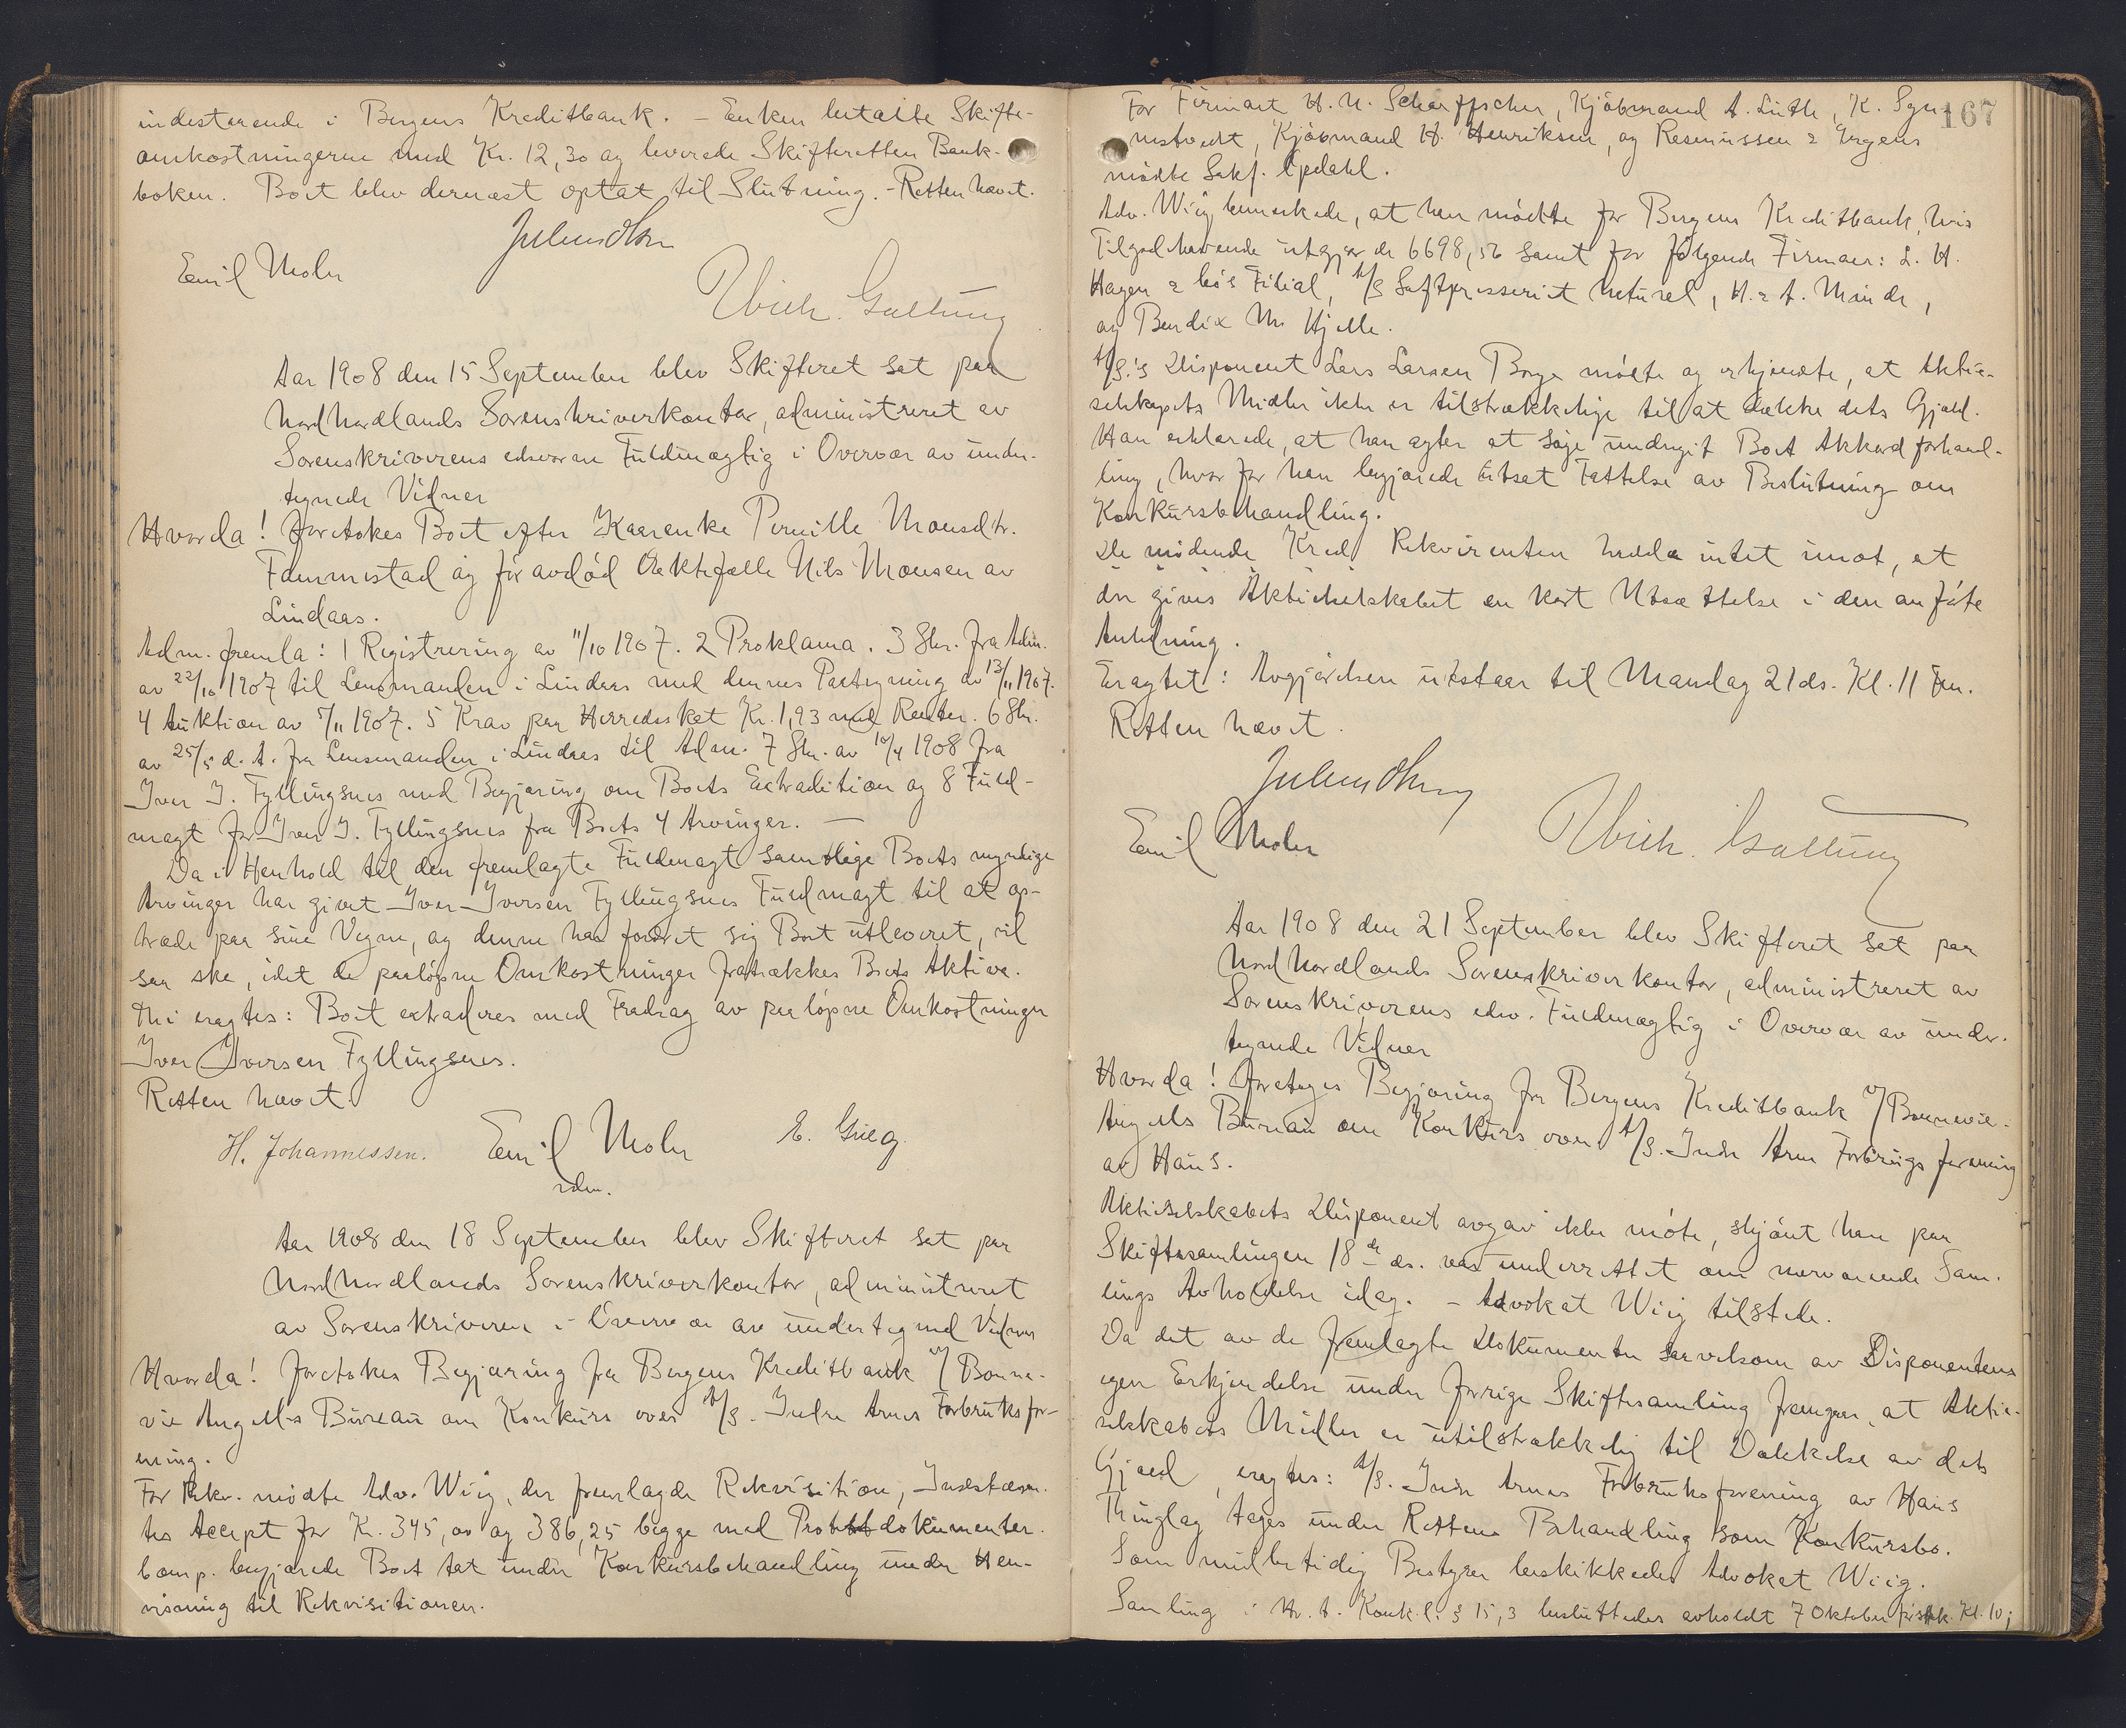 indestaaende i Bergens Kreditbank. – Enken betalte Skifte-
omkostningerne med Kr. 12,30 og leverede Skifteretten Bank-
boken. Boet blev dernæst optat til Slutning. – Retten hævet.
Julius Olsen
Emil Mohr
Ulrich. Galtung
Aar 1908 den 15 September blev Skifteret sat paa
Nordhordlands Sorenskriverkontor, administreret av
Sorenskriverens edsvorne Fuldmægtig i Overvær av under-
tegnede Vidner
Hvorda! foretokes Boet efter Kaarenke Pernille Monsdtr.
Fammestad og før avdød Ektefælle Nils Monsen av
Lindaas.
Adm. fremla: 1 Registrering av 11/10 1907. 2 Proklama. 3 Skr. fra Adm.
av 22/10 1907 til Lensmanden i Lindaas med dennes Paategning av 13/11 1907.
4 Auktion av 5/11 1907. 5 Krav paa Herredsskat Kr. 1,93 med Renter. 6 Skr.
av 25/5 d. A. fra Lensmanden i Lindaas til Adm. 7 Skr. av 10/4 1908 fra
Iver I. Fyllingsnes med Begjæring om Boets Extradition og 8 Fuld-
magt for Iver I. Fyllingsnes fra Boets 4 Arvinger. —
Da i Henhold til den fremlagte Fuldmagt samtlige Boets myndige
Arvinger har givet Iver Iversen Fyllingsnes Fuldmagt til at op-
træde paa sine Vegne, og denne har fordret sig Boet utleveret, vil
saa ske, idet de paaløpne Omkostninger fratrækkes Boets Aktiva.
Thi eragtes: Boet extraderes med Fradrag av paaløpne Omkostninger
Iver Iversen Fyllingsnes.
Retten hævet
H. Johannessen. Emil Mohr E. Grieg.
edsv.
Aar 1908 den 18 September blev Skifteret sat paa
Nordhordlands Sorenskriverkontor, administreret
av Sorenskriveren i Overvær av undertegned Vidner
Hvorda! foretokes Begjæring fra Bergens Kreditbank v/ Bonne-
vie Angells Bureau om Konkurs over A/S. Indre Arnes Forbruksfor-
ening.
For Rekv. mødte Adv. Wiig, der fremlagde Rekvisition, Indstævn-
tes Accept for Kr. 345,00 og 386,25 begge med Protestdokumenter.
Comp. begjærede Boet tat under Konkursbehandling under Hen-
visning til Rekvisitionen.
167
For Firmaet H. N. Scharffscher, Kjøbmand A. Lüthe, K. Sgu
nstvedt, Kjøbmand H. Henriksen, og Rasmussen & Irgens
mødte Sakf. Opdahl.
Adv. Wiig bemerkede, at han mødte for Bergens Kreditbank, hvis
Tilgodehavende utgjør de 6698,56 samt for følgende Firmaer: L. H.
Hagen & Co's Filial, A/S Saftpresseriet Naturel, H. & A. Minde,
og Bendix M. Hjelle.
A/S.'s Disponent Lars Larsen Borge mødte og erkjendte, at Aktie-
selskapets Midler ikke er tilstrækkelige til at dække dets Gjæld.
Han erklærede, at han agter at søge undergit Boet Akkordforhand-
ling, hvorfor han begjærede utsat Fattelse av Beslutning om
Konkursbehandling.
De mødende Kred. Rekvirenten hadde intet imot, at
der gives Aktieselskabet en kort Utsættelse i den anførte
Anledning.
Eragtet: Avgjørelsen utstaar til Mandag 21 ds. Kl. 11 Fm.
Retten hævet.
Julius Olsen
Emil Mohr
Ulrich. Galtung
Aar 1908 den 21 September blev Skifteret sat paa
Nordhordlands Sorenskriverkontor, administreret av
Sorenskriverens edsv. Fuldmægtig i Overvær av under-
tegnede Vidner
Hvorda! foretoges Begjæring fra Bergens Kreditbank v/ Bonnevie-
Angells Bureau om Konkurs over A/S. Indre Arne Forbrugsforening
av Haus.
Aktieselskabets Disponent avgav ikke møte, skjønt han paa
Skiftesamlingen 18de ds. var underrettet om nærværende Sam-
lings Avholdelse idag. – Advokat Wiig tilstede.
Da det av de fremlagte Dokumenter saavelsom av Disponentens
egen Erkjendelse under forrige Skiftesamling fremgaar, at Aktie-
selskabets Midler er utilstrækkelig til Dækkelse av dets
Gjæld, eragtes: A/S. Indre Arnes Forbruksforening av Haus
Thinglag tages under Rettens Behandling som Konkursbo.
Som midlertidig Bestyrer beskikkedes Advokat Wiig.
Samling i H. t. Konk.l. § 15,3 besluttedes avholdt 7 Oktober førstk. Kl. 10;